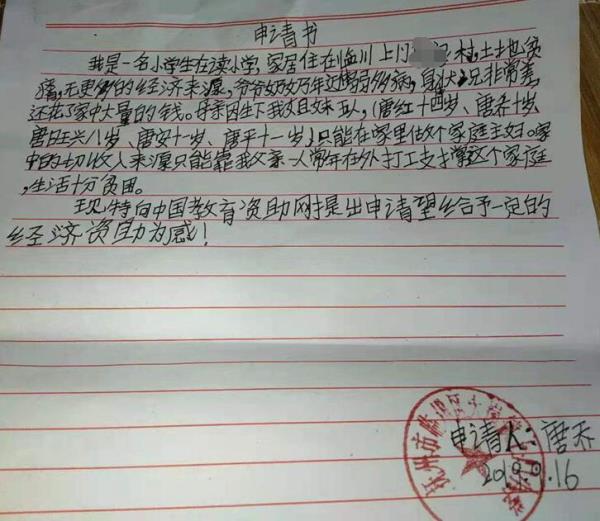 申请书
我是一名小学生在读小学,家居住在临川上 村,土地贫
瘠,无更多的经济来源,爷爷奶奶年迈体弱多病,身状况非常差,
还花了家中大量的钱。母亲因生下我姐妹五人,(唐红十四岁、唐乔十岁、
唐 兴八岁、唐安十岁、唐平十一岁)只能在家里做个家庭主妇。家
中的一切收入来源只能靠我父亲一人常年在外打工支撑这个家庭
,生活十分贫困。
现特向中国教育资助网提出申请望给予一定的
经济资助为感!
申请人:唐乔
2019.9.16
抚州市临川区